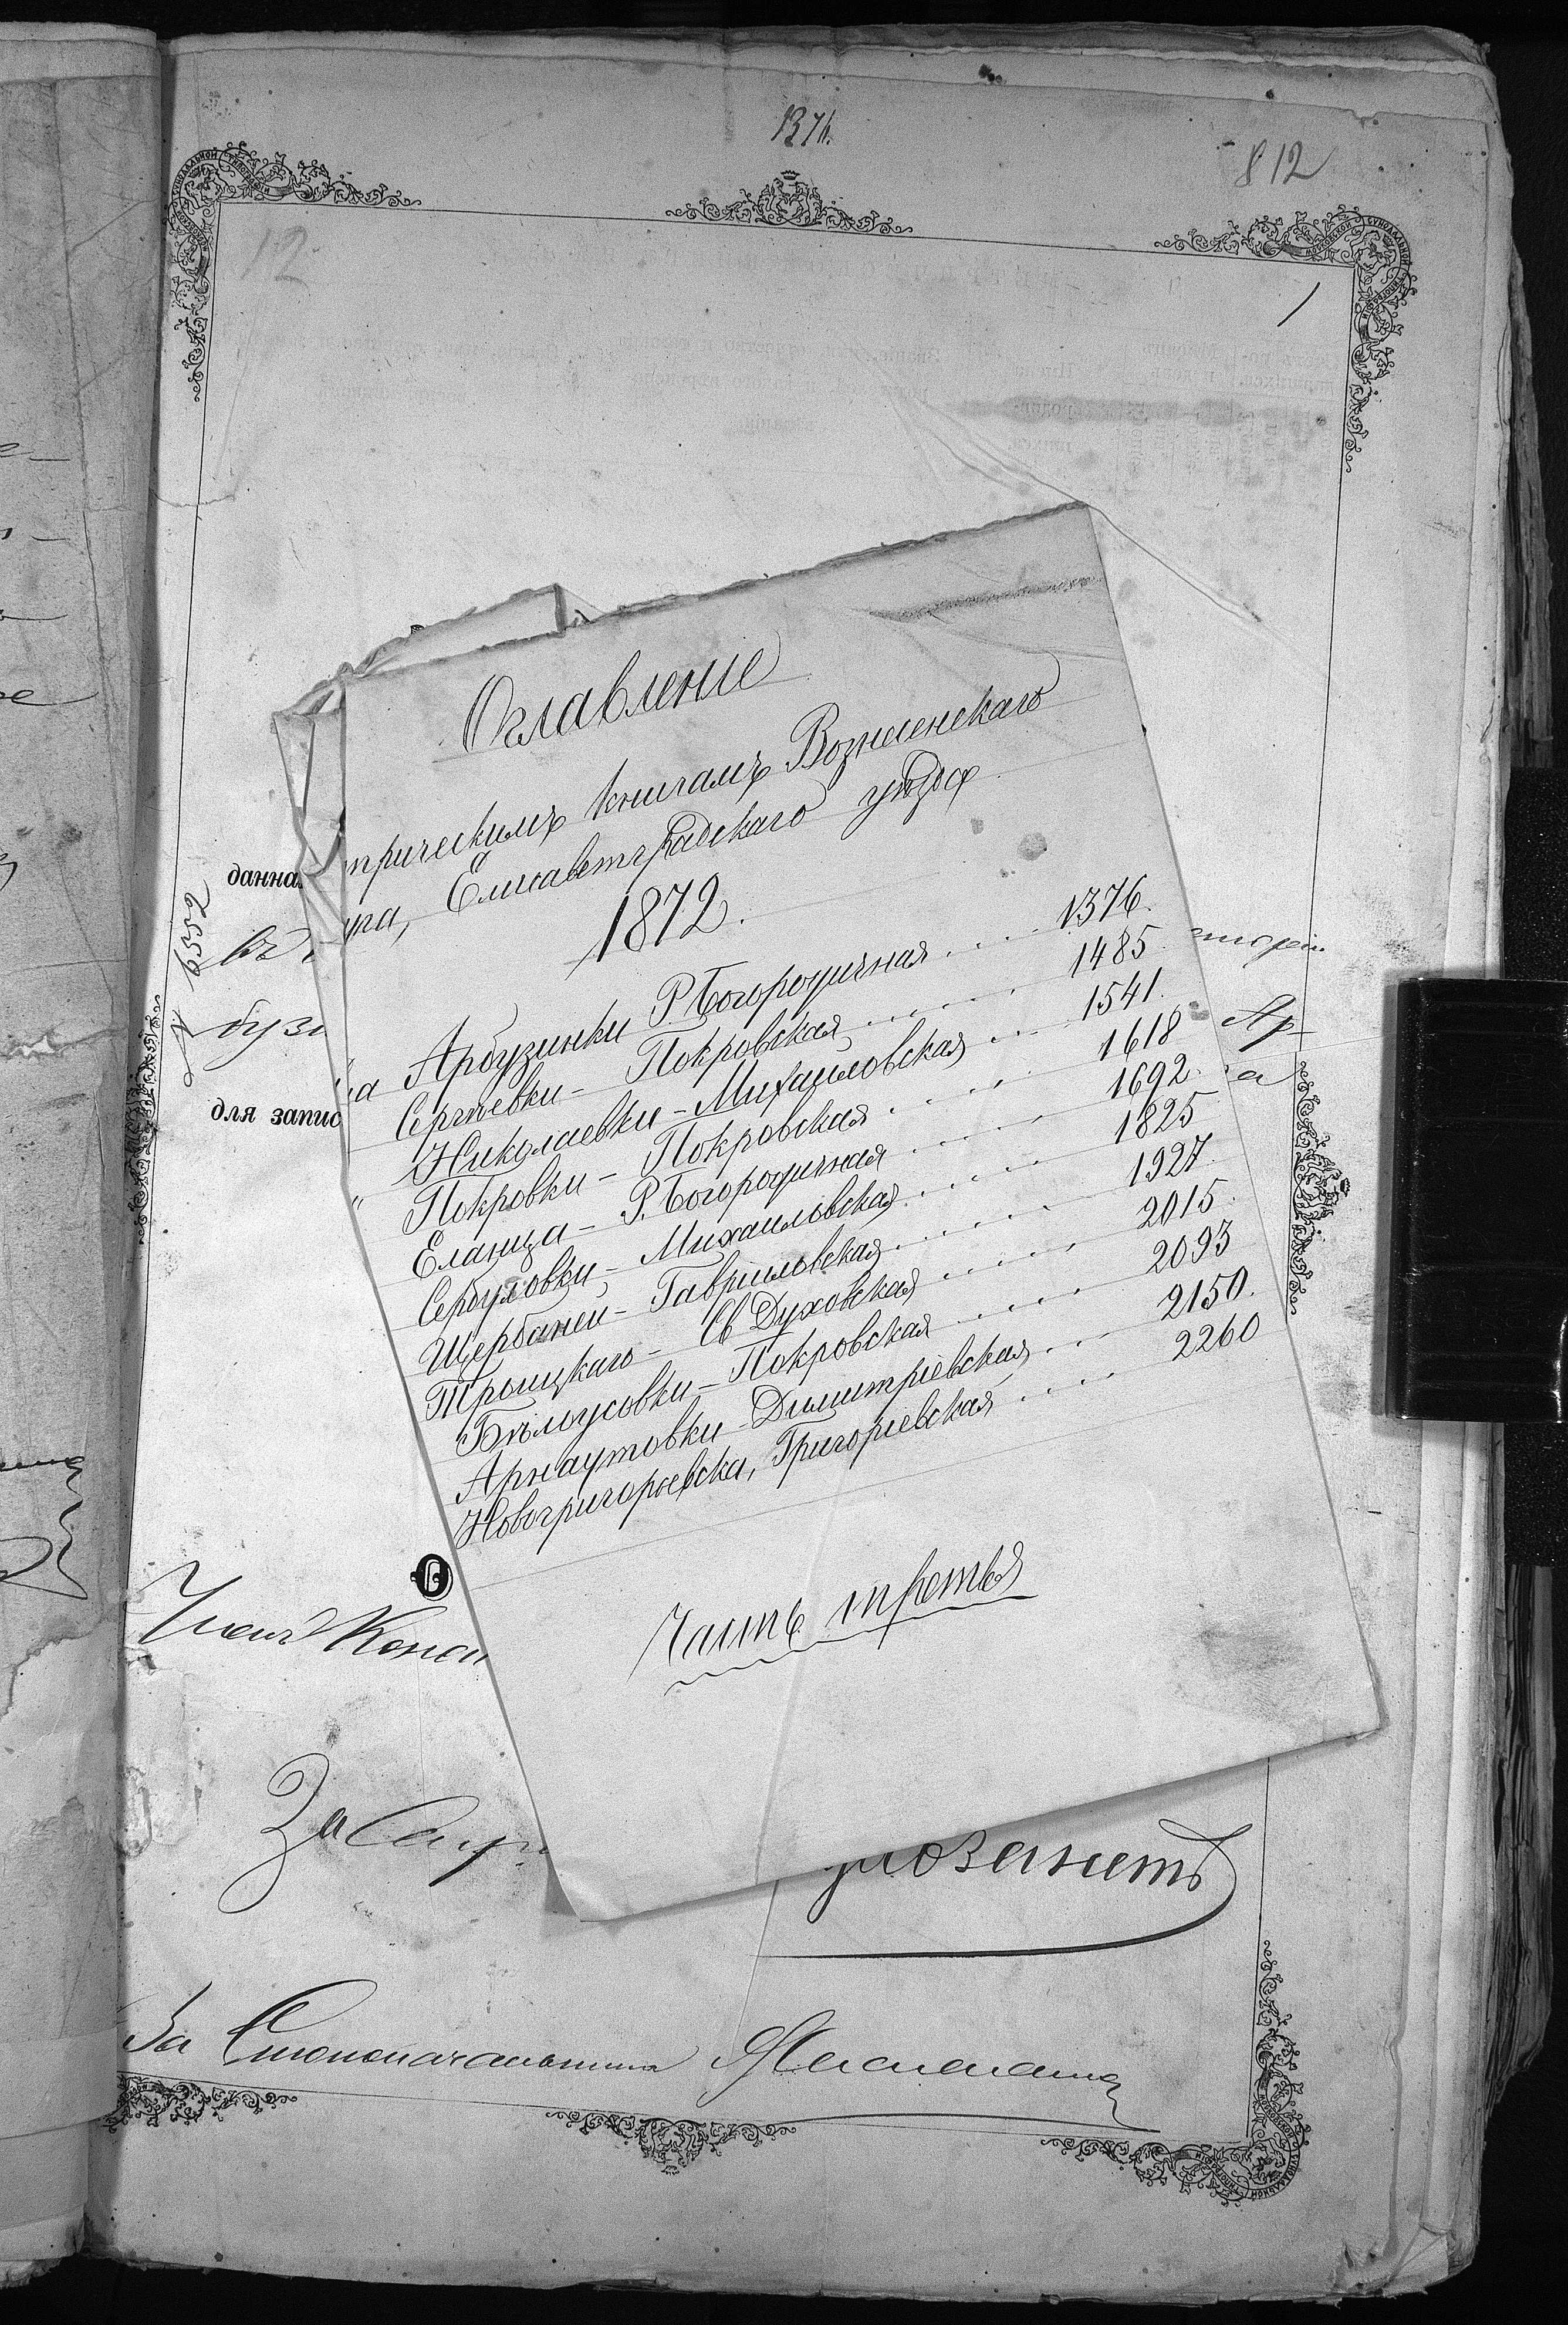 1376.
812
12
Оглавленіе
трическимъ книгамъ Вознесенскаго
уга, Елисаветградскаго уѣзда
1872.
а Арбузинки Р. Богородичная . . . . 1376.
Сергѣевки - Покровская . . . . 1485
" Николаевки - Михайловская . . . 1541.
Покровки - Покровская . . . . 1618
Еланца - Р. Богородичная . . . . 1692.
Сербуловки - Михайловская . . . . 1825
Щербаней - Гавриіловская . . . . 1927.
Троицкаго - Св Духовская . . . . 2015.
Бѣлоусовки - Покровская . . . . 2093
Арнаутовки - Димитріевская . . . 2150.
Новогригорьевска, Григоріевская . . . . 2260
Часть третья
данна
№ 6552
въ
бузи
Ар-
а
для запис
О
Членъ Конси
За Секр
За Столоначальника